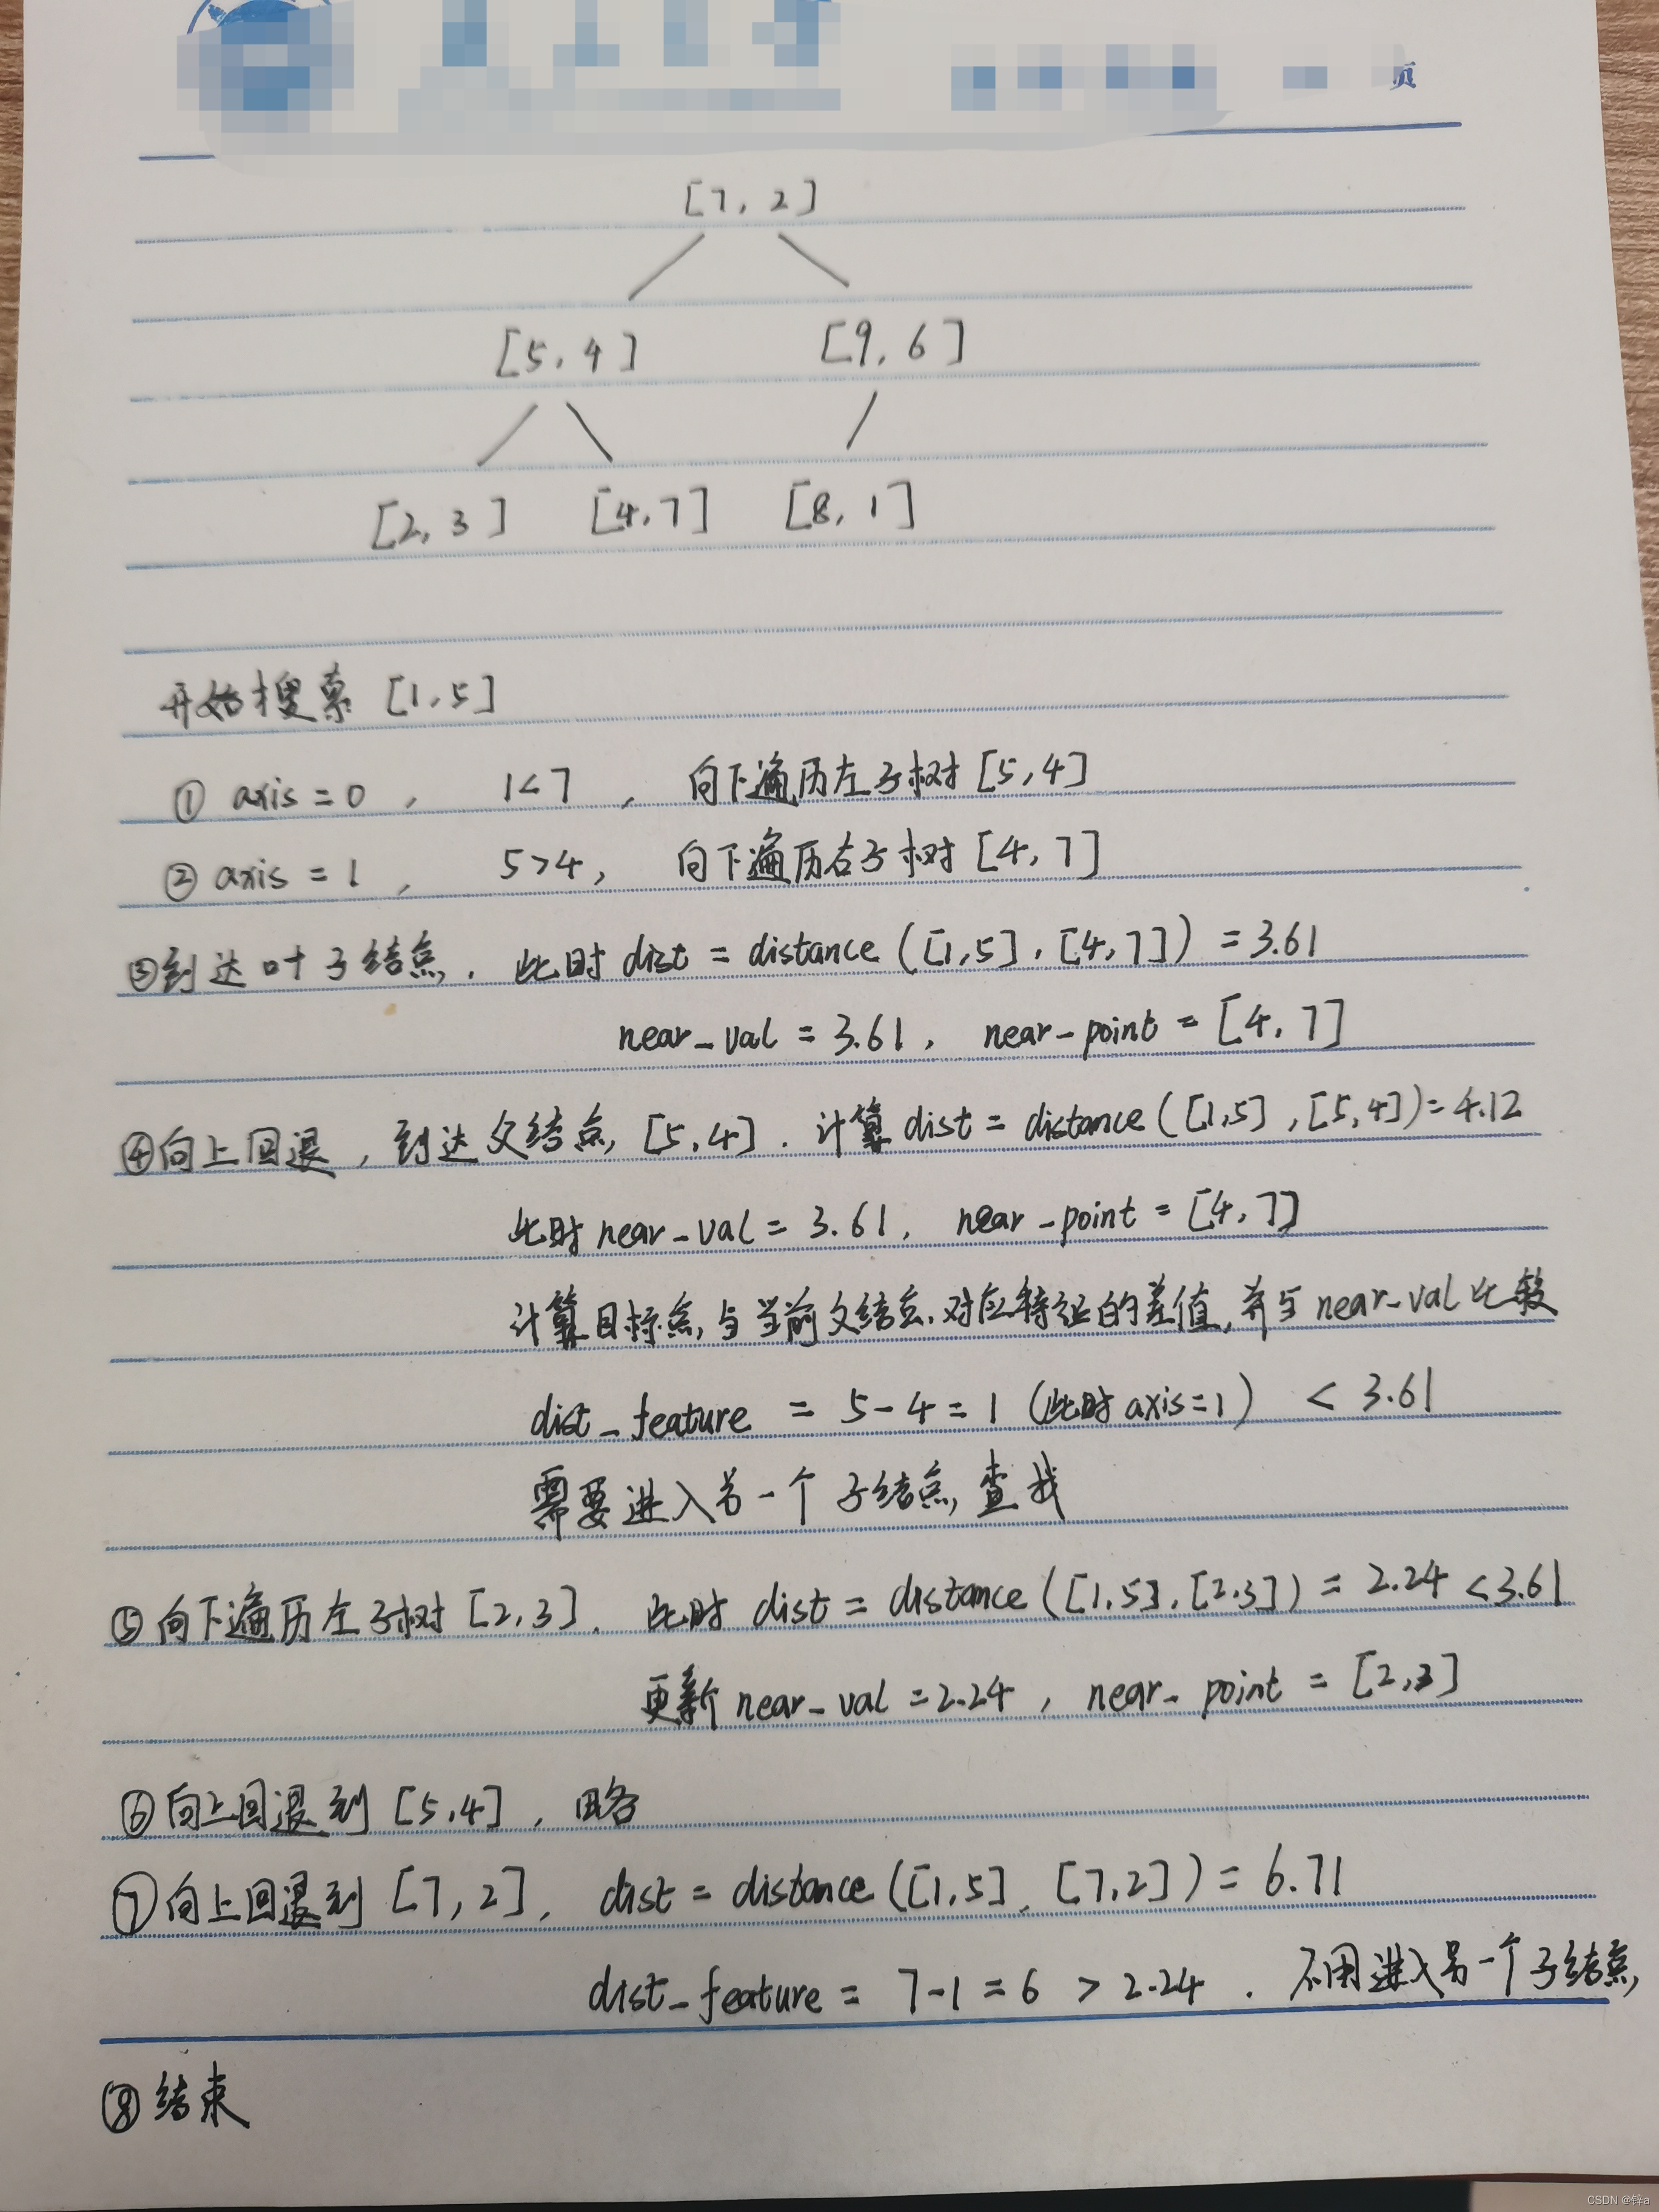 页
[7, 2]
[5, 4] [9, 6]
[2, 3] [4, 7] [8, 1]
开始搜索 [1, 5]
① axis = 0 , 1<7 , 向下遍历左子树 [5, 4]
② axis = 1 , 5>4 , 向下遍历右子树 [4, 7]
③到达叶子结点. 此时 dist = distance ([1,5] , [4,7]) = 3.61
near_val = 3.61 , near_point = [4, 7]
④向上回退 , 到达父结点 [5,4] . 计算 dist = distance ([1,5] , [5,4]) = 4.12
此时 near_val = 3.61 , near_point = [4, 7]
计算目标点与当前父结点对应特征的差值, 并与 near_val 比较
dist_feature = 5-4 = 1 (此时 axis=1) < 3.61
需要进入另一个子结点查找
⑤向下遍历左子树 [2, 3] . 此时 dist = distance ([1,5] , [2,3]) = 2.24 < 3.61
更新 near_val = 2.24 , near_point = [2,3]
⑥向上回退到 [5,4] , 略
⑦向上回退到 [7, 2] , dist = distance ([1,5] , [7,2]) = 6.71
dist_feature = 7-1 = 6 > 2.24 . 不用进入另一个子结点
⑧结束
CSDN @锌a